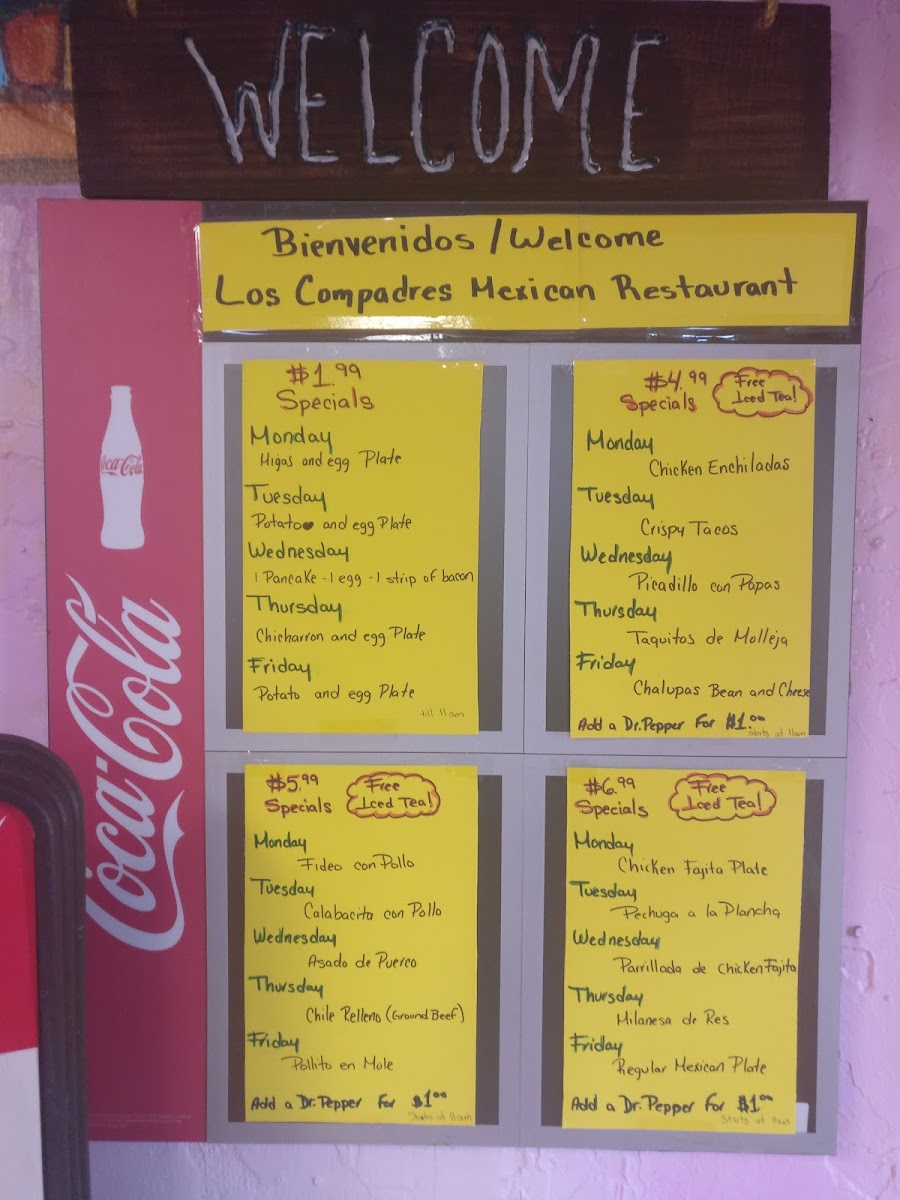 WELCOME
Bienvenidos / Welcome
Los Compadres Mexican Restaurant
Coca-Cola
Coca-Cola
$1.99
Specials
Monday
Higas and egg Plate
Tuesday
Potato and egg Plate
Wednesday
1 Pancake - 1 egg - 1 strip of bacon
Thursday
Chicharron and egg Plate
Friday
Potato and egg Plate
till 11am
$4.99
Specials
Free
Iced Tea!
Monday
Chicken Enchiladas
Tuesday
Crispy Tacos
Wednesday
Picadillo con Papas
Thursday
Taquitos de Molleja
Friday
Chalupas Bean and Cheese
Add a Dr. Pepper For $1.00
Starts at 11am
$5.99
Specials
Free
Iced Tea!
Monday
Fideo con Pollo
Tuesday
Calabacita con Pollo
Wednesday
Asado de Puerco
Thursday
Chile Relleno (Ground Beef)
Friday
Pollito en Mole
Add a Dr. Pepper For $1.00
Starts at 11am
$6.99
Specials
Free
Iced Tea!
Monday
Chicken Fajita Plate
Tuesday
Pechuga a la Plancha
Wednesday
Parrillada de Chicken Fajita
Thursday
Milanesa de Res
Friday
Regular Mexican Plate
Add a Dr. Pepper For $1.00
Starts at 11am